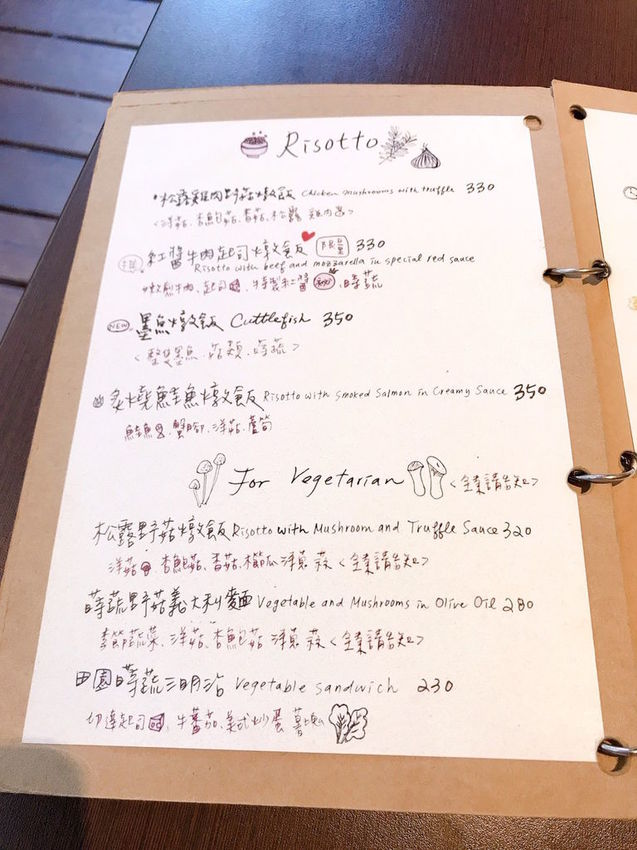 Risotto
松露雞肉野菇燉飯 Chicken mushrooms with truffle 330
<洋菇、杏鮑菇、香菇、松露 雞肉>
紅醬牛肉起司燉飯 限量 330
Risotto with beef and mozzarella in special red sauce
嫩煎牛肉、起司、特製紅醬 時蔬
NEW 墨魚燉飯 Cuttlefish 350
<整隻墨魚、菇類、時蔬>
炙燒鮭魚燉飯 Risotto with Smoked Salmon in Creamy Sauce 350
鮭魚、蟹腳、洋菇、蘆筍
For Vegetarian <全素請告知>
松露野菇燉飯 Risotto with Mushroom and Truffle Sauce 320
洋菇、杏鮑菇、香菇、櫛瓜 洋蔥 蒜 <全素請告知>
時蔬野菇義大利麵 Vegetable and Mushrooms in Olive Oil 280
季節蔬菜、洋菇、杏鮑菇 洋蔥 蒜 <全素請告知>
田園時蔬三明治 Vegetable sandwich 230
切達起司、牛蕃茄、美式炒蛋